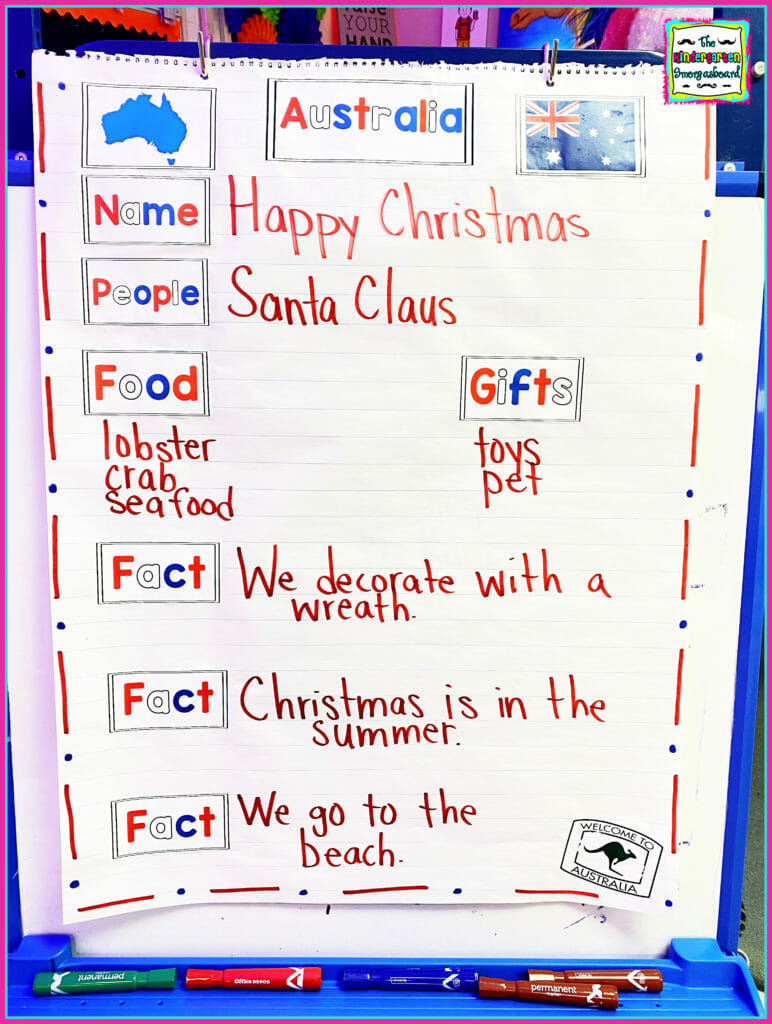 RAISE
YOUR
HAND
The
Kindergarten
Smorgasboard
Australia
Name Happy Christmas
People Santa Claus
Food
lobster
crab
seafood
Gifts
toys
pet
Fact We decorate with a
wreath.
Fact Christmas is in the
summer.
Fact We go to the
beach.
WELCOME TO
AUSTRALIA
permanent
Office DEPOT
permanent